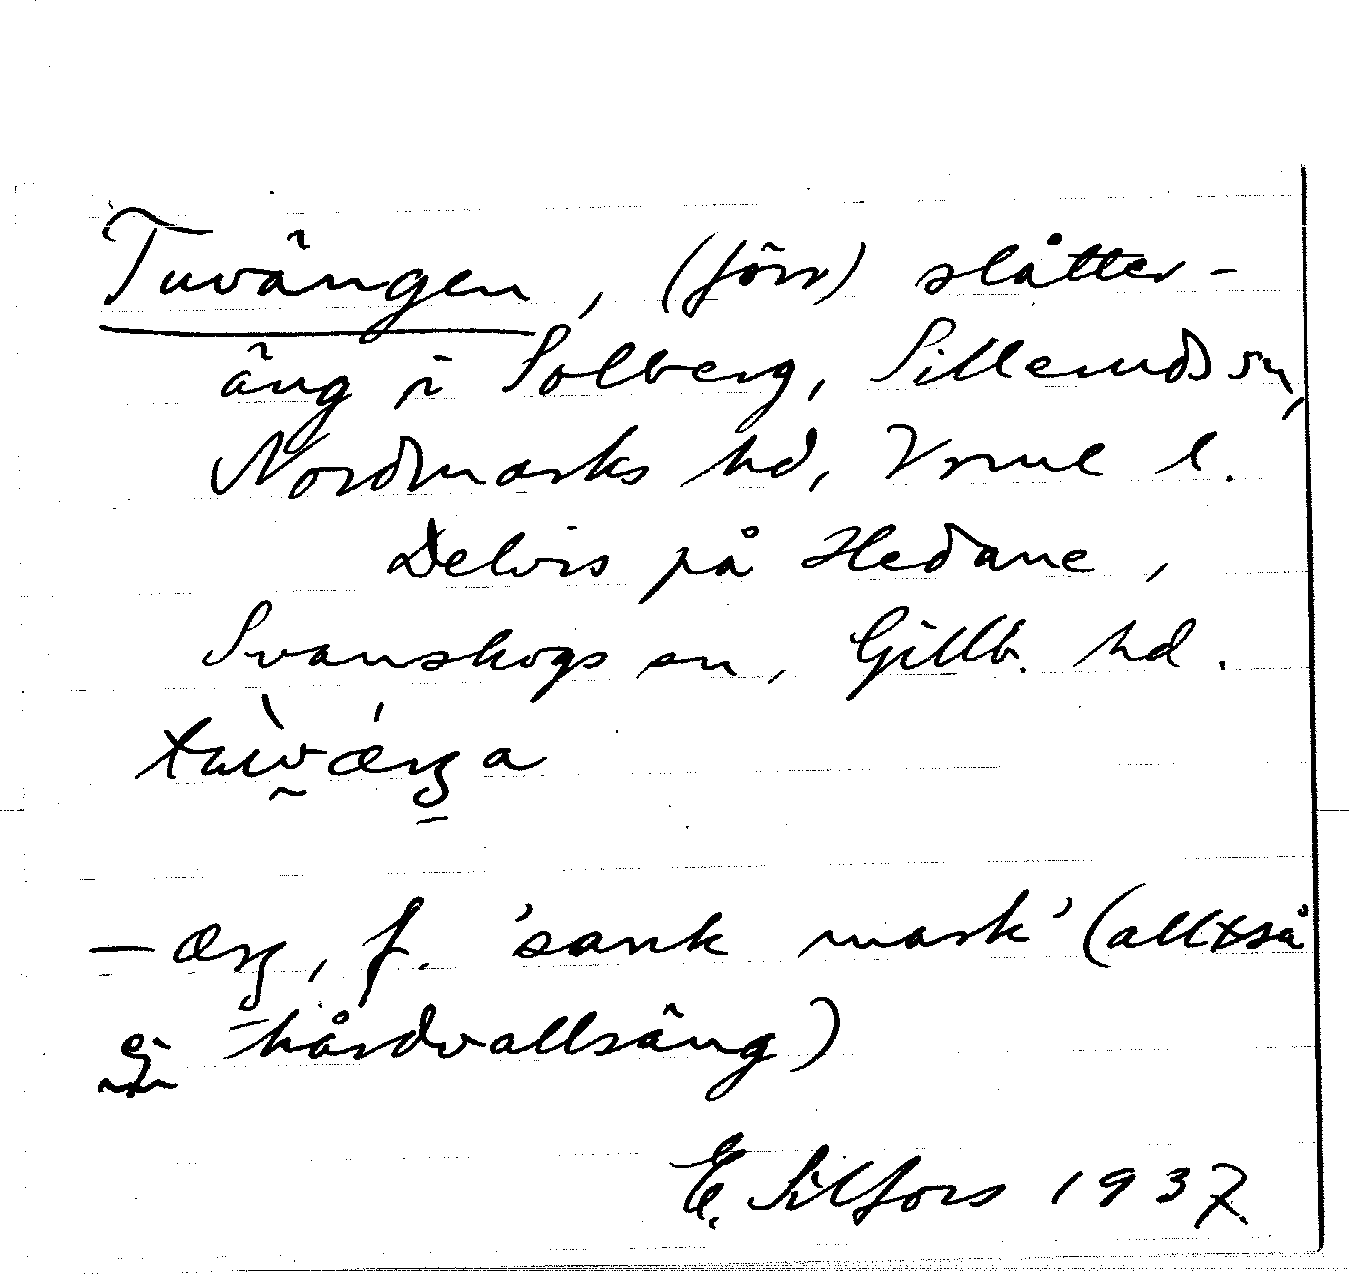 Tuvängen, (förr) slåtter-
äng i Solberg, Sillerudssn,
Nordmarks hd, Vrml l.
Delvis på Hedane,
Svanskogs sn, Gillb. hd.
– f. 'sank mark' (alltså
ej hårdvallsäng)
E. Silfors 1937.